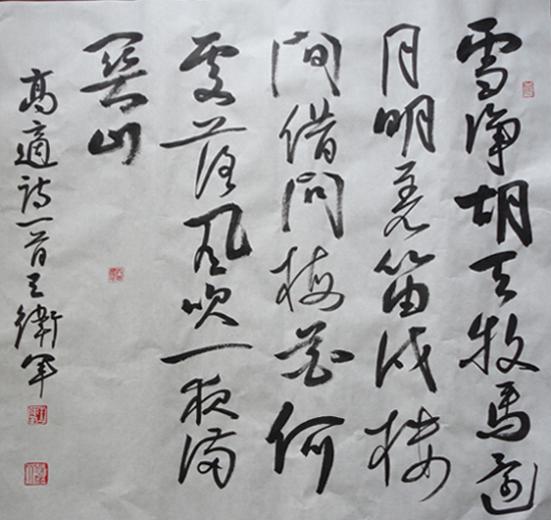 雪净胡天牧馬還
月明羌笛戍楼
间借问梅花何
處落风吹一夜满
関山
高適诗一首王衛军